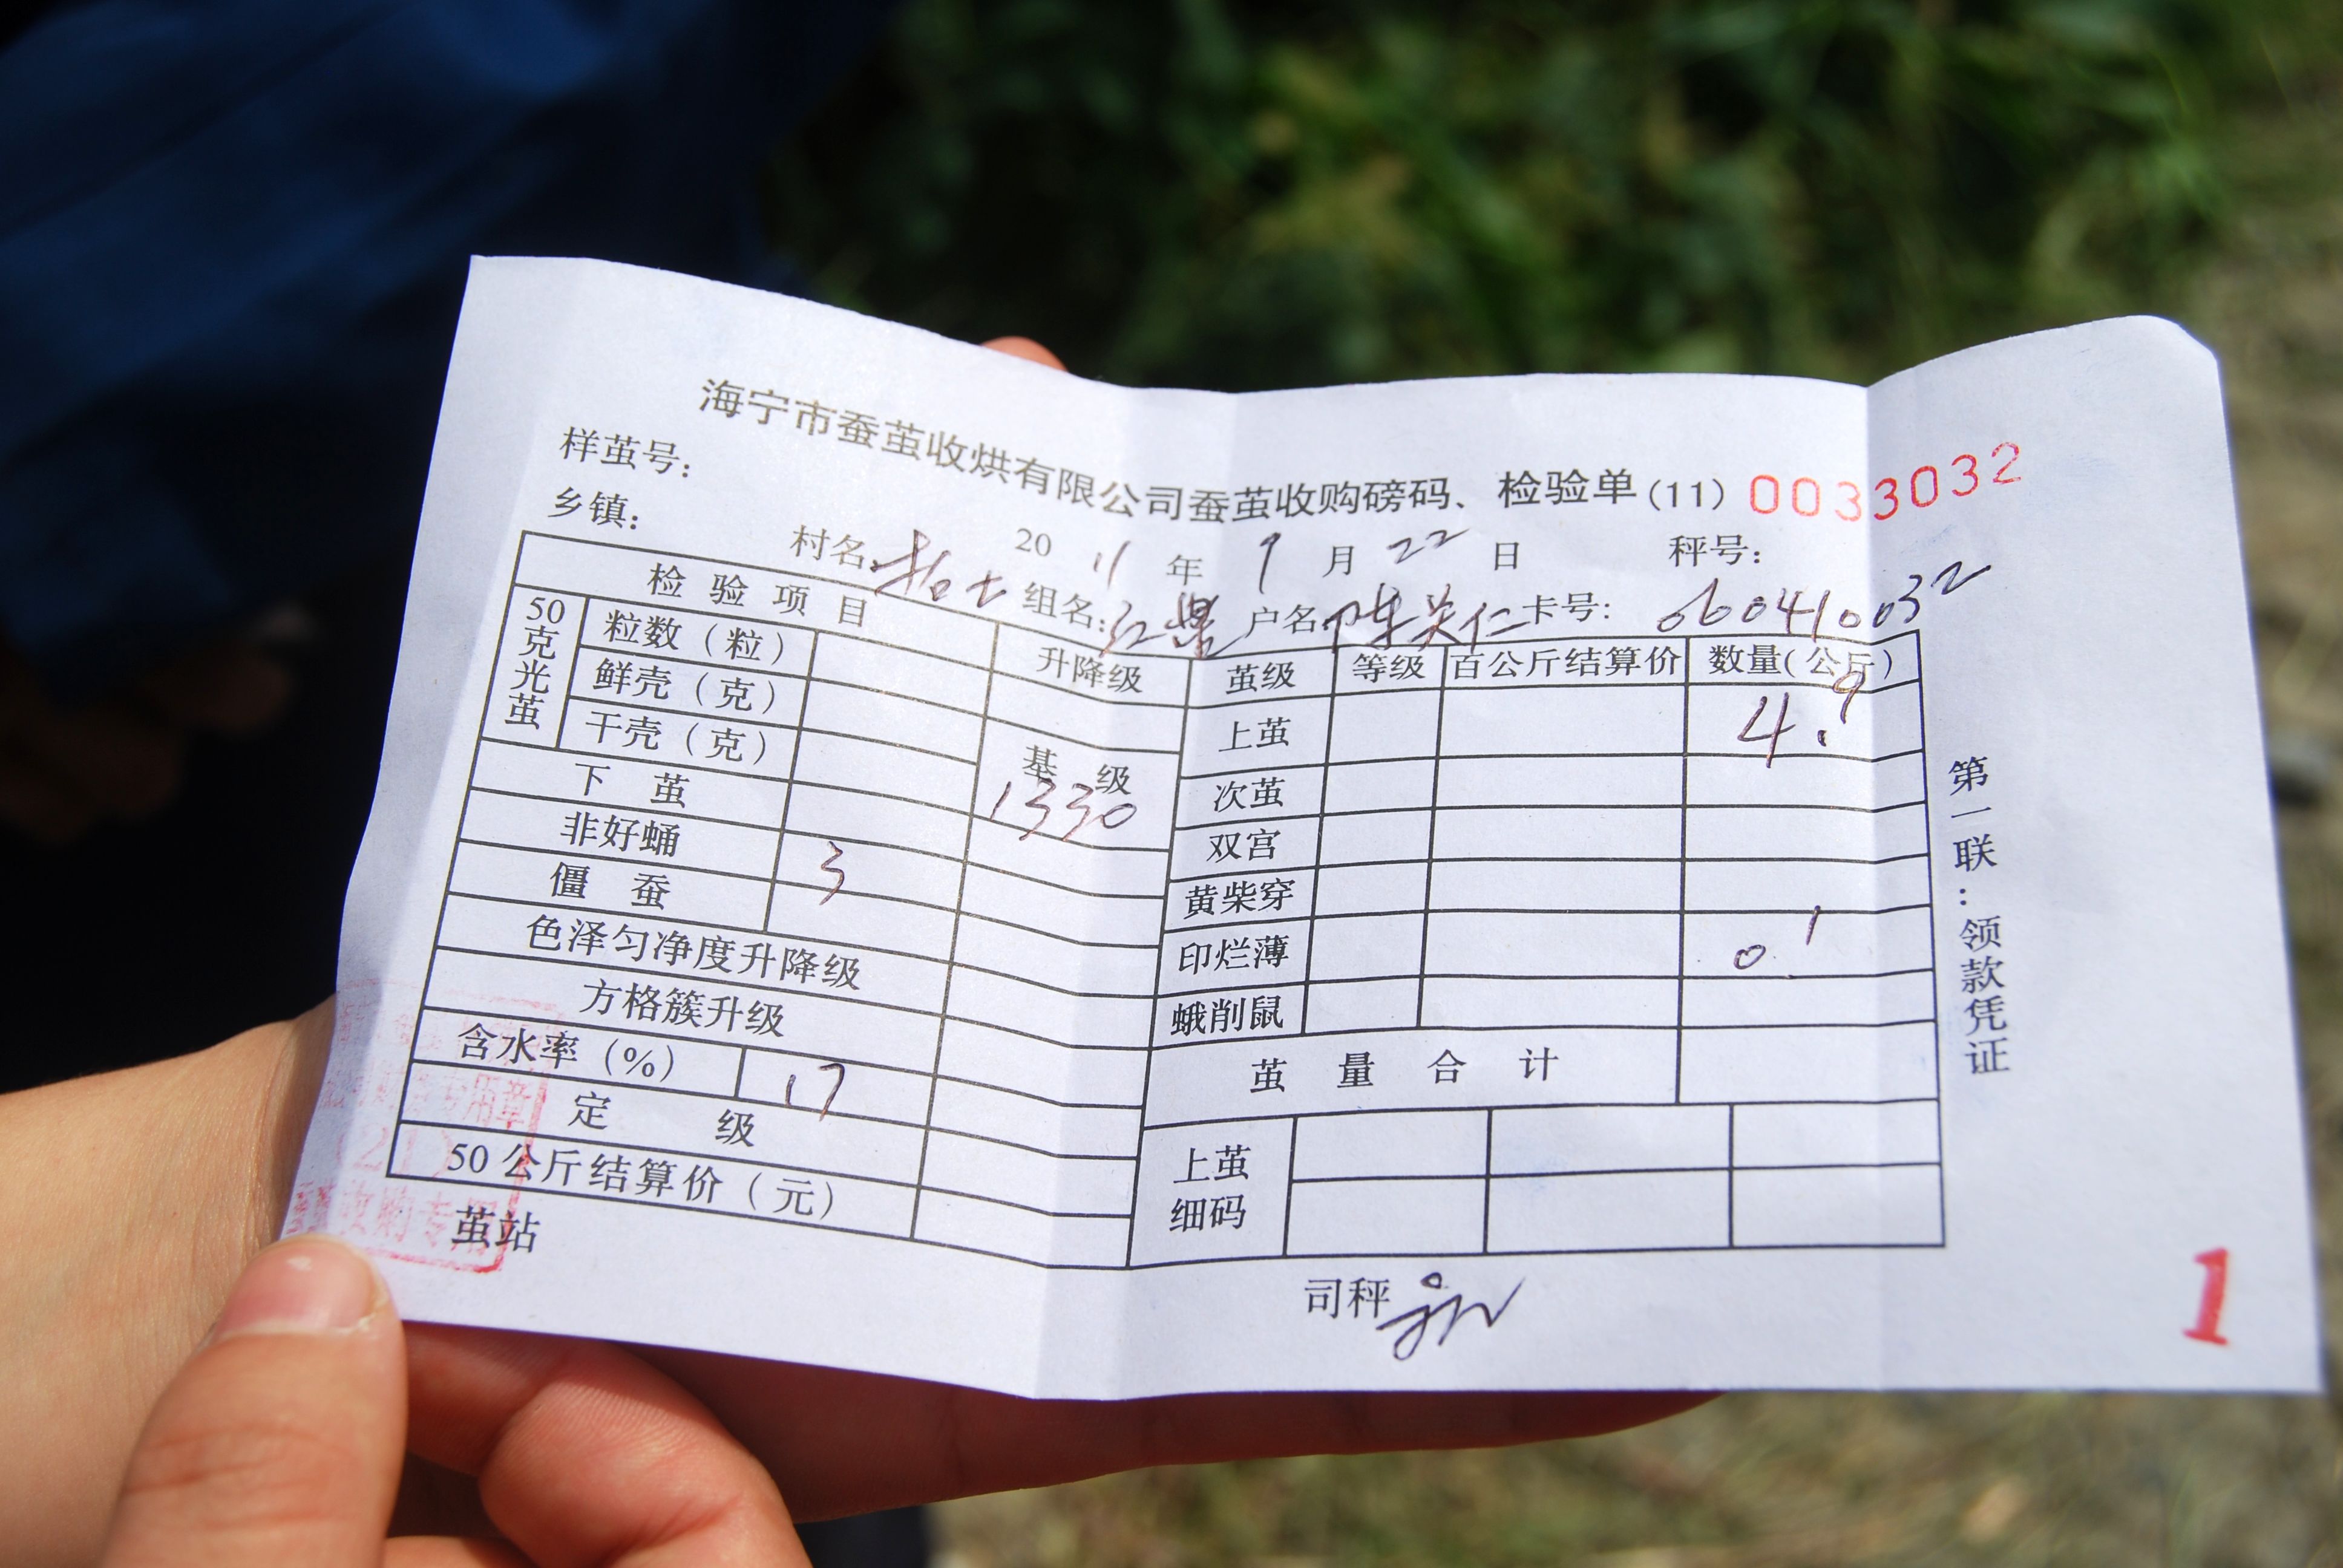 海宁市蚕茧收烘有限公司蚕茧收购磅码、检验单(11) 0033032
样茧号:
20 11 年 9 月 22 日 秤号:
乡镇: 村名: 组名:红 户名:陈关仁 卡号: 660410032
检验项目 升降级
50克光茧
粒数(粒)
鲜壳(克)
干壳(克)
基级 1330
下茧
非好蛹 3
僵蚕
色泽匀净度升降级
方格簇升级
含水率(%) 17
定级
50公斤结算价(元)
茧站
茧级 等级 百公斤结算价 数量(公斤)
上茧 4.9
次茧
双宫
黄柴穿
印烂薄 0.1
蛾削鼠
茧量合计
上茧细码
司秤
第一联:领款凭证
用章
(21)
收购专用
1